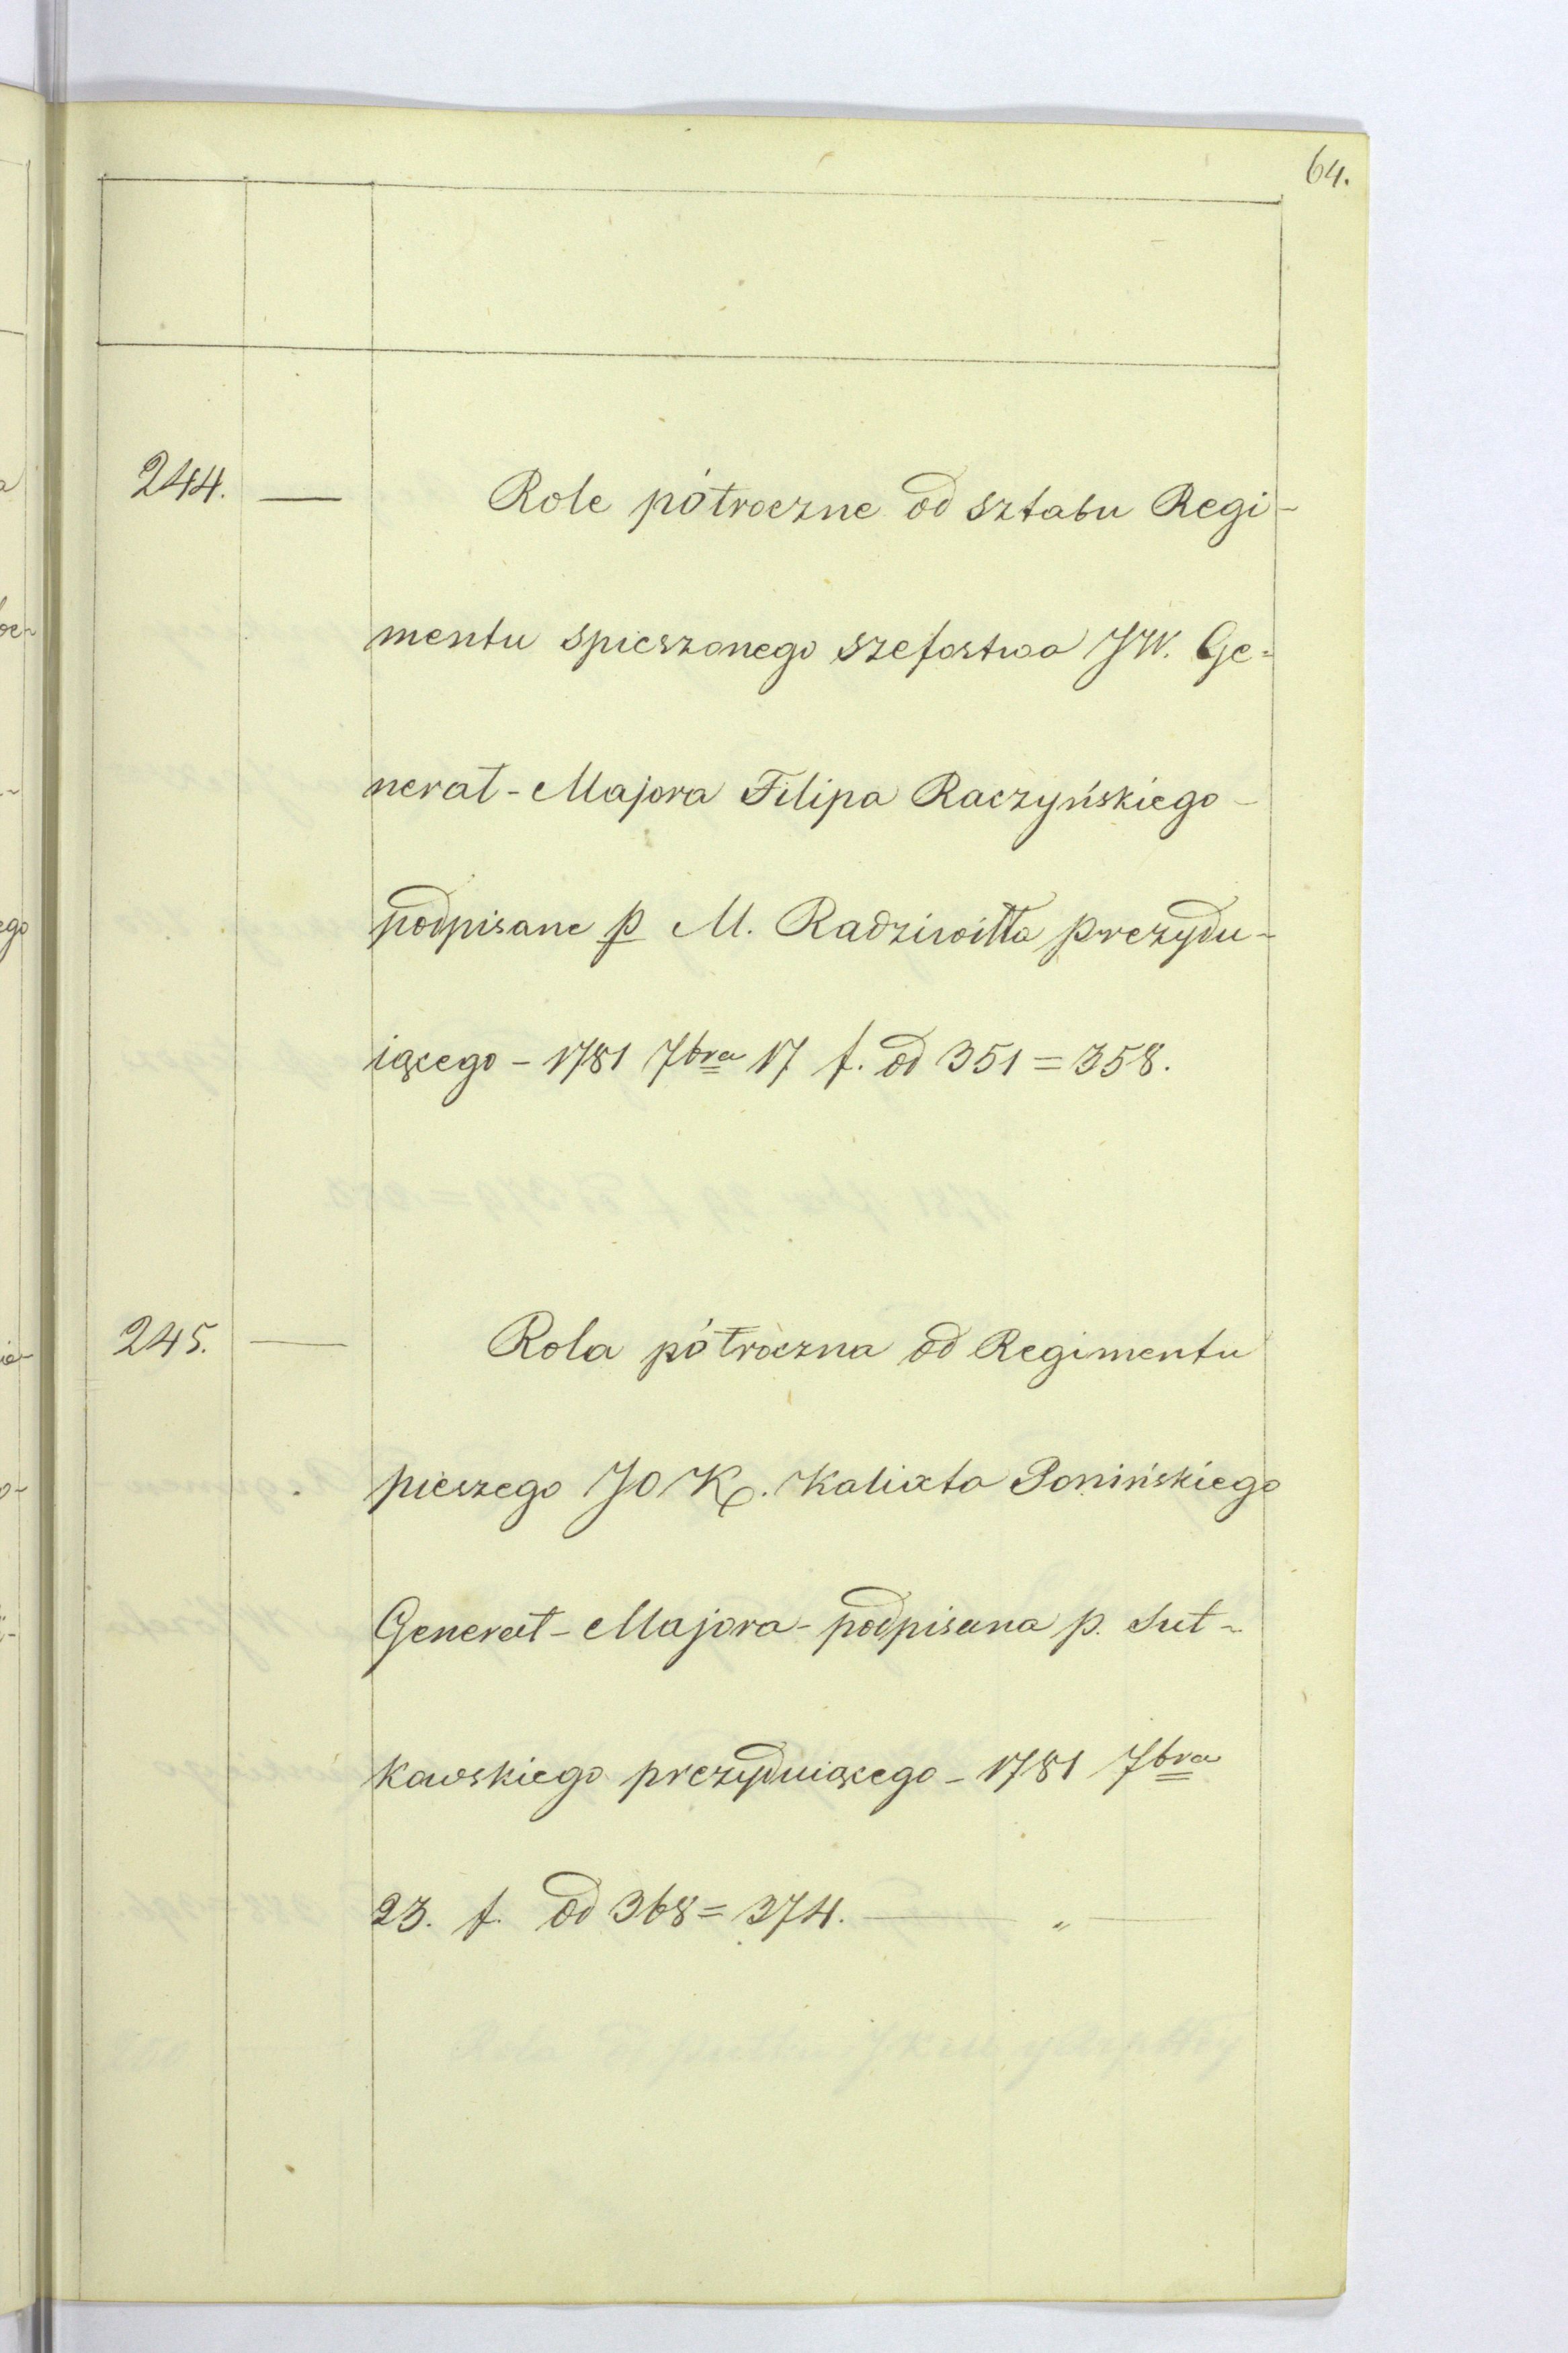 64.
244. — Role półroczne od sztabu Regi-
mentu spieszonego szefostwa JW. Ge=
nerał-Majora Filipa Raczyńskiego -
podpisane p M. Radziwiłła prezydu-
iącego - 1781 7bra 17 f. od 351 = 358.
245. — Rola półroczna od Regimentu
pieszego JO K. Kalixta Ponińskiego
Generał-Majora - podpisana p. Suł-
kowskiego prezyduiącego - 1781 7bra
23. f. od 368 = 374. — " —